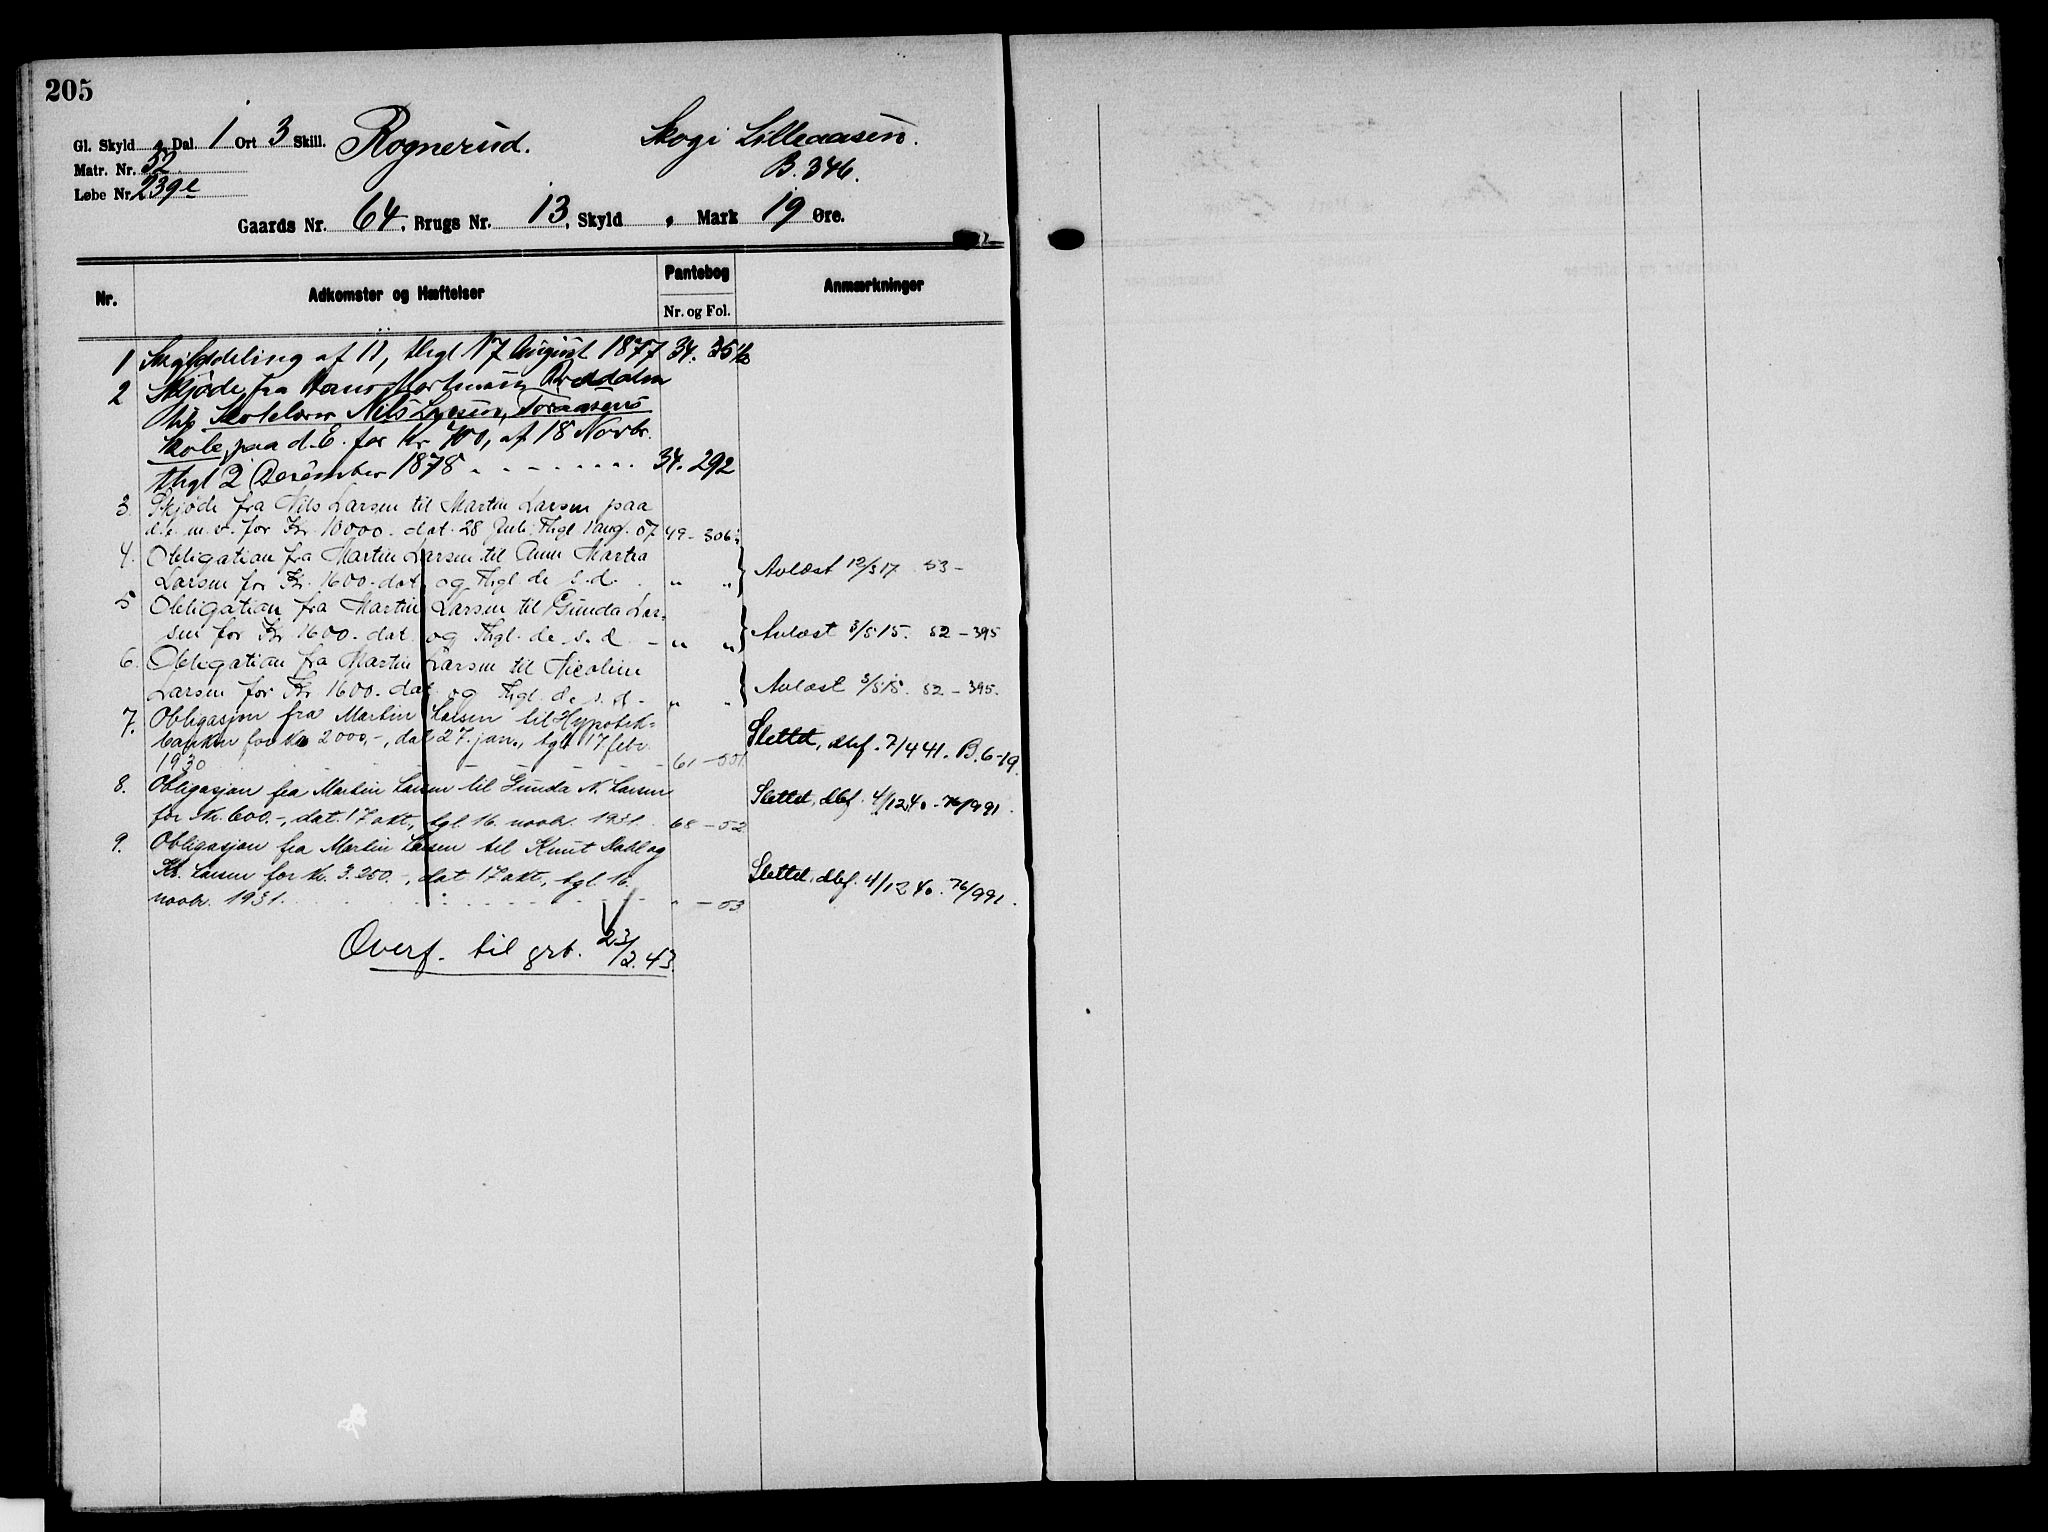 205
Gl. Skyld „ Dal. 1 Ort 3 Skill. Rognerud. Skog i Lilleaasen.
Matr. Nr. 52 B. 346.
Løbe Nr. 239e
Gaards Nr. 64, Brugs Nr. 13, Skyld „ Mark 19 Øre.
Nr. Adkomster og Hæftelser Pantebog Anmærkninger
Nr. og Fol.
1 Skylddeling af 11, thgl 17 August 1877 34.
2 Skjøde fra Hans
til Skolelærer Nils Larsen, Toraasens
Skole, paa d. E. for Kr 400, af 18 Novbr.
thgl 2 December 1878 34. 292
3. Skjøde fra Nils Larsen til Martin Larsen paa
d.e. m.v. for Kr. 10000. dat. 28 Juli Thgl 1 aug. 07 49-306
4. Obligation fra Martin Larsen til Anne Martea
Larsen for Kr. 1600. dat. og Thgl. de. s.d. „ „ Avlæst 12/3 17 53-
5 Obligation fra Martin Larsen til Gunda Lar-
sen for Kr 1600. dat. og Thgl. de. s. d. - „ „ Avlæst 3/5 15. 52-395
6. Obligation fra Martin Larsen til Nicoline
Larsen for Kr 1600. dat. og Thgl. de. s. d. - „ „ Avlæst 3/5 15. 52-395.
7. Obligasjon fra Martin Larsen til Hypotek-
banken for Kr 2000,-, dat 27. jan., tgl. 17 febr.
1930 61-551 Slettet, dbf. 7/4 41. B.6-19.
8. Obligasjon fra Martin Larsen til Gunda N. Larsen
for Kr. 600.-, dat. 17 okt., tgl. 16. novbr. 1931. 68-52 Slettet, dbf. 4/12 40. 76/991.
9. Obligasjon fra Martin Larsen til Knut Dahl og
Kr. Larsen for Kr. 3.250.-, dat. 17 okt., tgl. 16.
novbr. 1931. „ -53 Slettet, dbf. 4/12 40. 76/991.
Overf. til grb. 23/2.43.